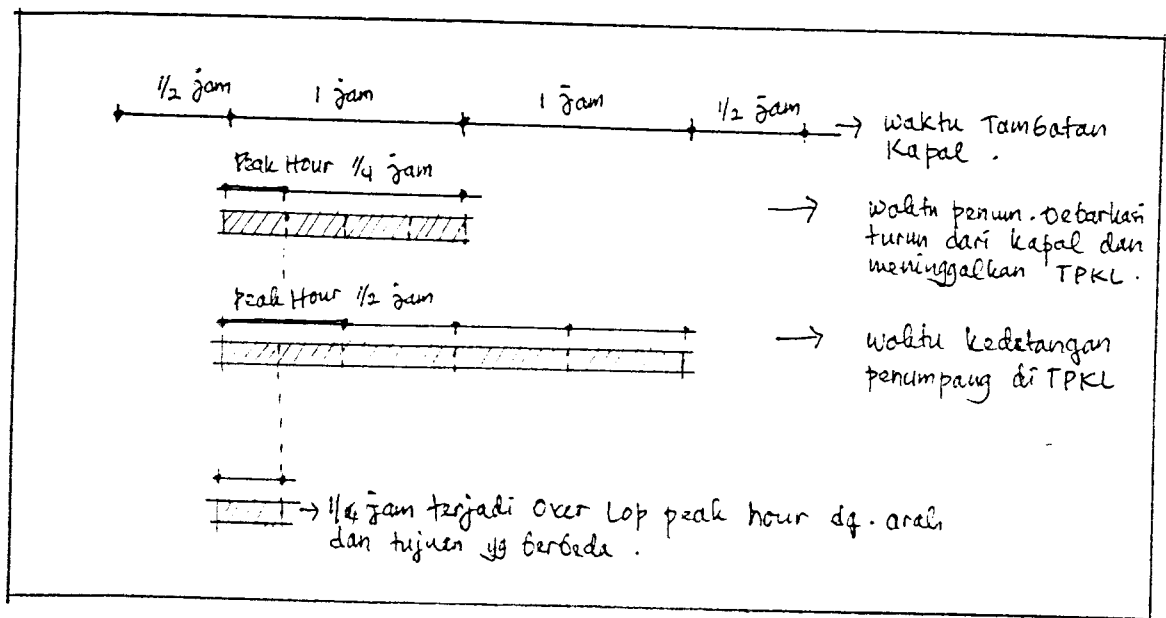 1/2 jam 1 jam 1 jam 1/2 jam
→ waktu Tambatan
Kapal .
Peak Hour 1/4 jam
→ waktu penum. Debarkasi
turun dari kapal dan
meninggalkan TPKL .
Peak Hour 1/2 jam
→ waktu kedatangan
penumpang di TPKL
→ 1/4 jam terjadi Over Lop peak hour dg. arah
dan tujuan yg berbeda .